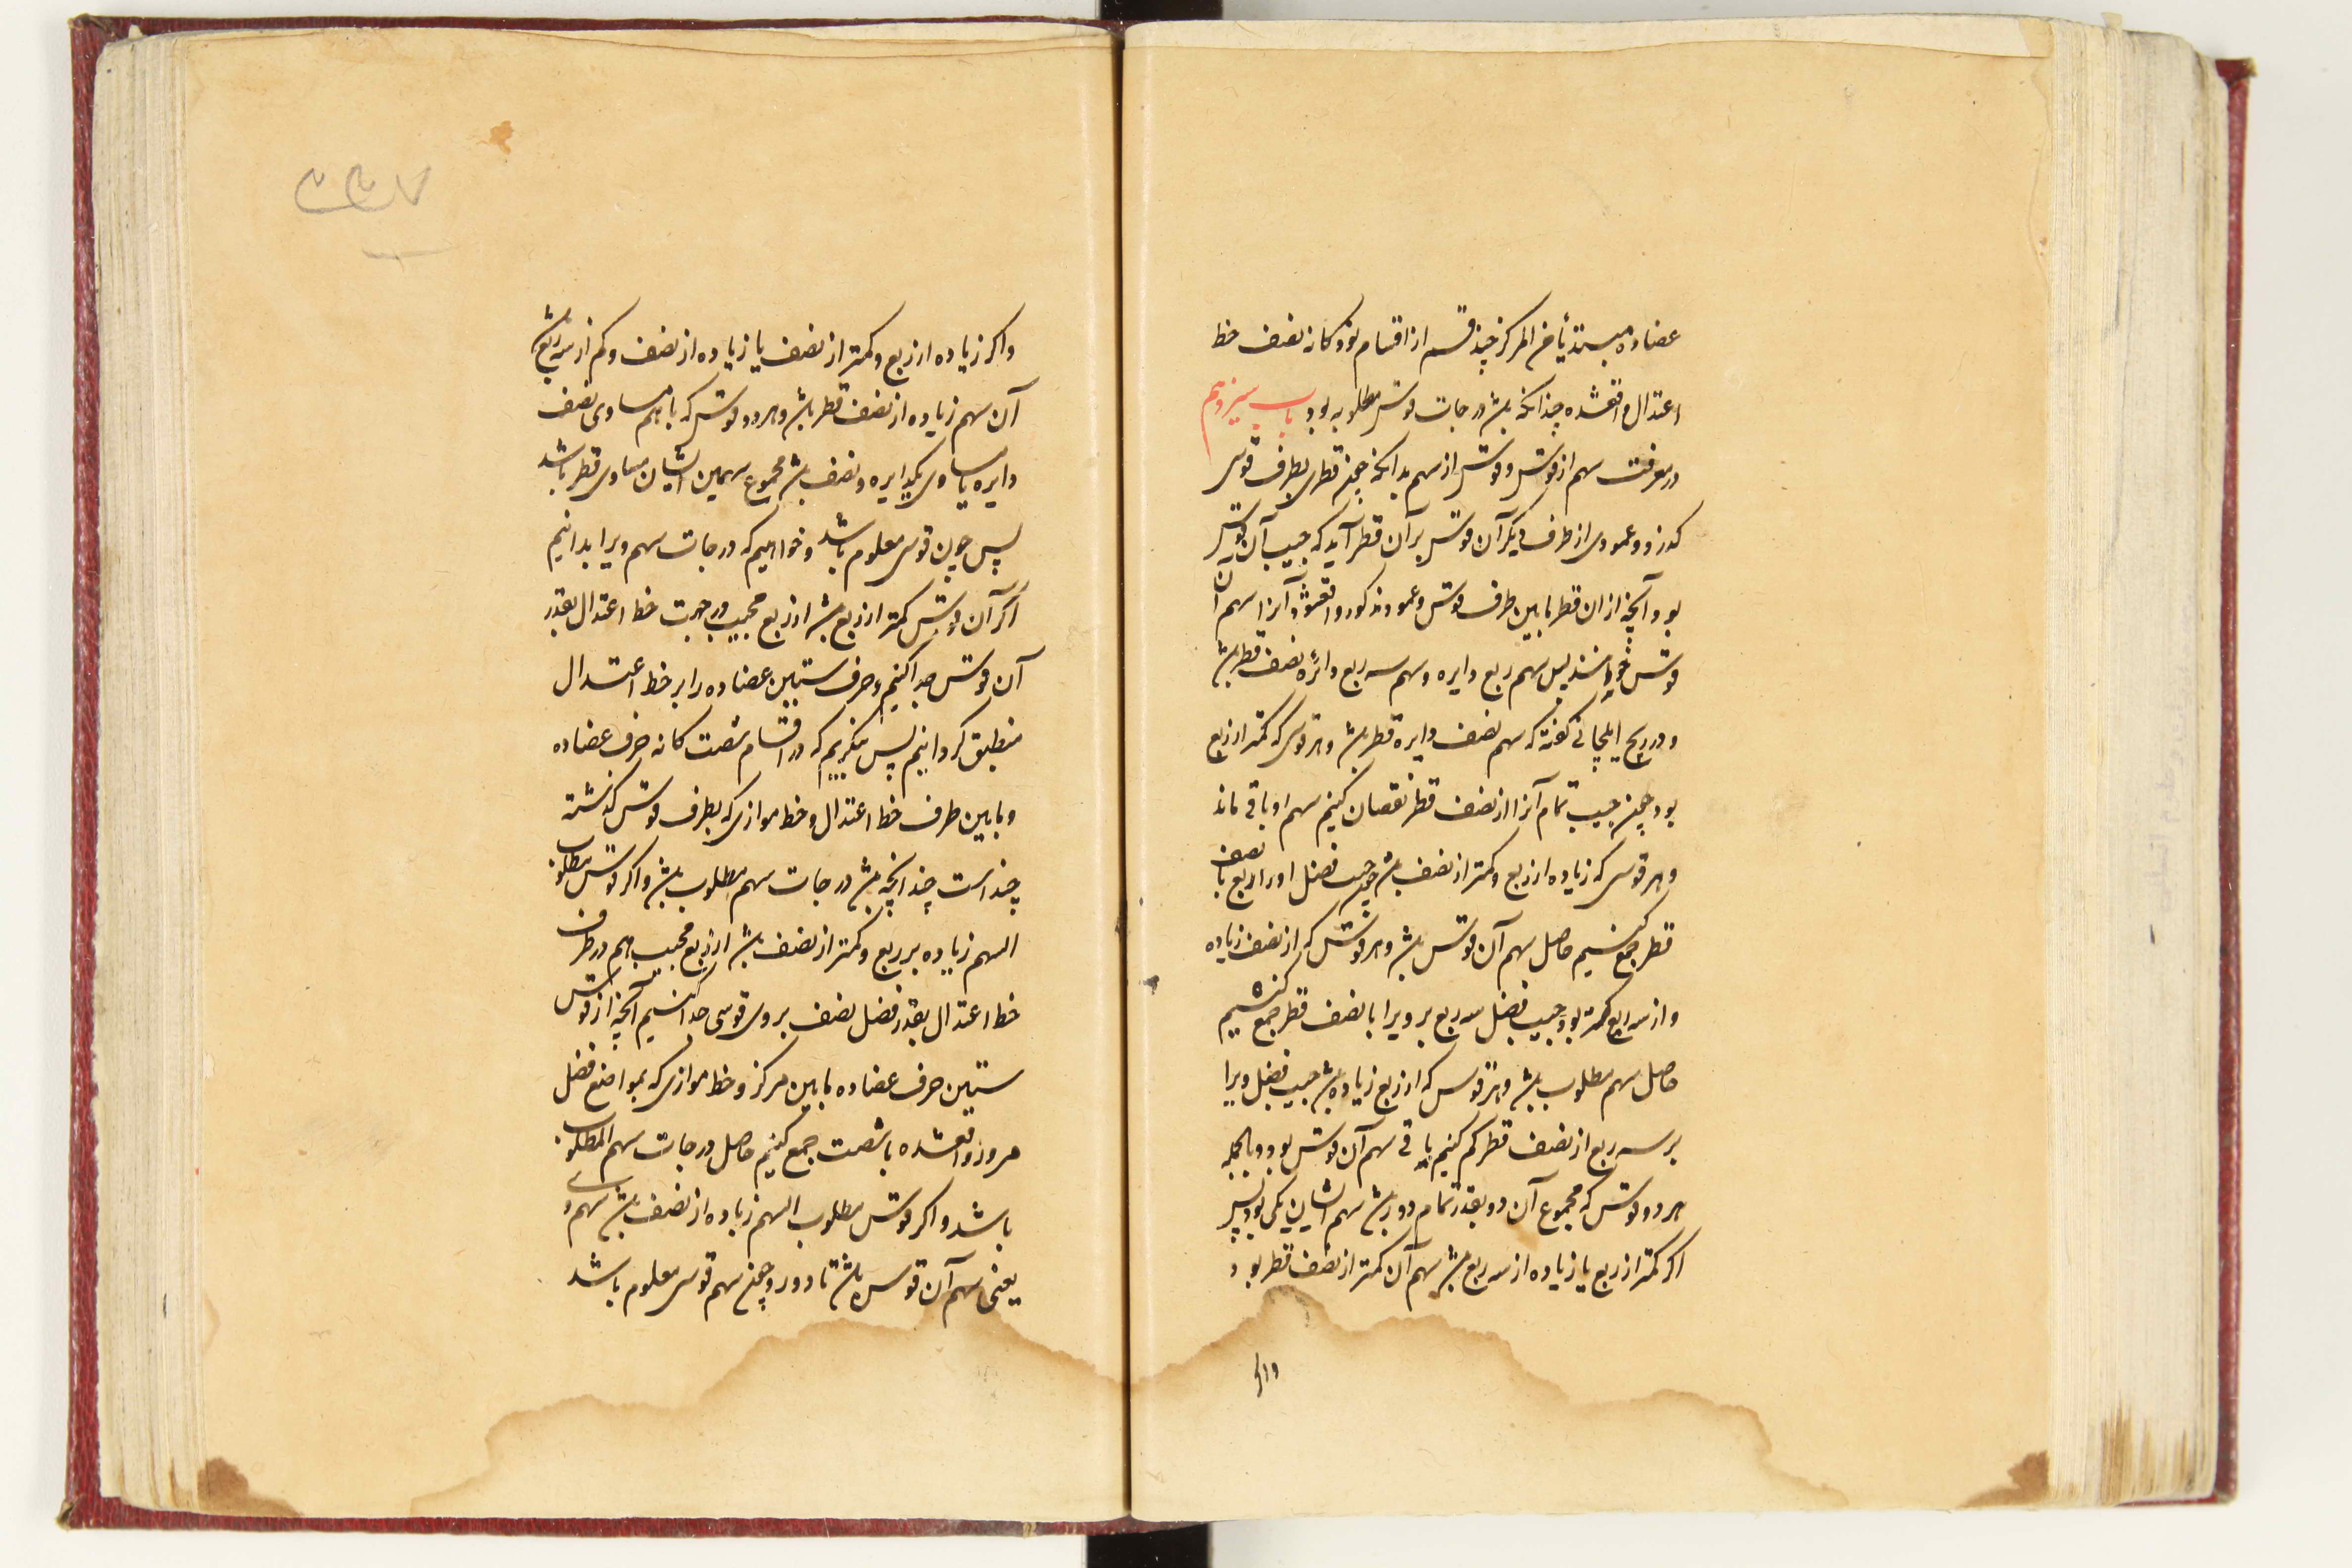 عضاده مبتدئا من المرکز چند قسم از اقسام بود کانه نصف خط
اعتدال واقعشده چندانکه باشد درجات قوس مطلوبه بود باب سیزدهم
در معرفت سهم از قوس و قوس از سهم بدانکه چون قطری بطرف قوسی
کذرد و عمودی از طرف دیکر آن قوس بر آن قطر آید که جیب آن قوس
بود و آنچه از ان قطر مابین طرف قوس و عمود مذکور واقعشود آنرا سهم آن
قوس خوانند پس سهم ربع دایره و سهم سه ربع دائره نصف قطر باشد
و در زیج ایلخانی کفته که سهم نصف دایره قطر باشد و هر قوسی که کمتر از ربع
بود چون جیب تمام آنرا از نصف قطر نقصان کنیم سهم او باقی ماند
و هر قوسی که زیاده از ربع و کمتر از نصف باشد چون جیب فضل او را بر ربع با نصف
قطر جمع کنیم حاصل سهم آن قوس باشد و هر قوس که از نصف زیاده
و از سه ربع کمتر بود جیب فضل سه ربع بر ویرا با نصف قطر جمع کنیم
حاصل سهم مطلوب باشد و هر قوس که از ربع زیاده باشد جیب فضل ویرا
بر سه ربع از نصف قطر کم کنیم باقی سهم آن قوس بود و بالجمله
هر دو قوس که مجموع آن دو بقدر تمام دور باشد سهم ایشان یکی بود پس
اکر کمتر از ربع یا زیاده از سه ربع باشد سهم آن کمتر از نصف قطر بود
واکر
واکر زیاده از ربع و کمتر از نصف یا زیاده از نصف و کم از سه ربع باشد
آن سهم زیاده از نصف قطر باشد و هر دو قوس که با هم مساوی نصف
دایره یا مساوی یکدایره و نصف باشد مجموع سهمین ایشان مساوی قطر باشد
پس چون قوسی معلوم باشد و خواهیم که درجات سهم ویرا بدانیم
اکر آن قوس کمتر از ربع باشد از ربع مجیب در جهت خط اعتدال بقدر
آن قوس جدا کنیم و حرف ستین عضاده را بر خط اعتدال
منطبق کردانیم پس بنکریم که در اقسام شصت کانه حرف عضاده
و مابین طرف خط اعتدال و خط موازی که بطرف قوس کذشته
چند است چندانچه باشد درجات سهم مطلوب باشد و اکر قوس مطلوب
السهم زیاده بر ربع و کمتر از نصف باشد از ربع مجیب هم در طرف
خط اعتدال بقدر فضل نصف بر وی قوسی جدا کنیم آنچه از قوس
ستین حرف عضاده مابین مرکز و خط موازی که بمواضع فضل
مرور واقعشده با شصت جمع کنیم حاصل درجات سهم المطلوب
باشد و اکر قوس مطلوب السهم زیاده از نصف باشد سهم وی
یعنی سهم آن قوس باشد تا دور و چون سهم قوسی معلوم باشد